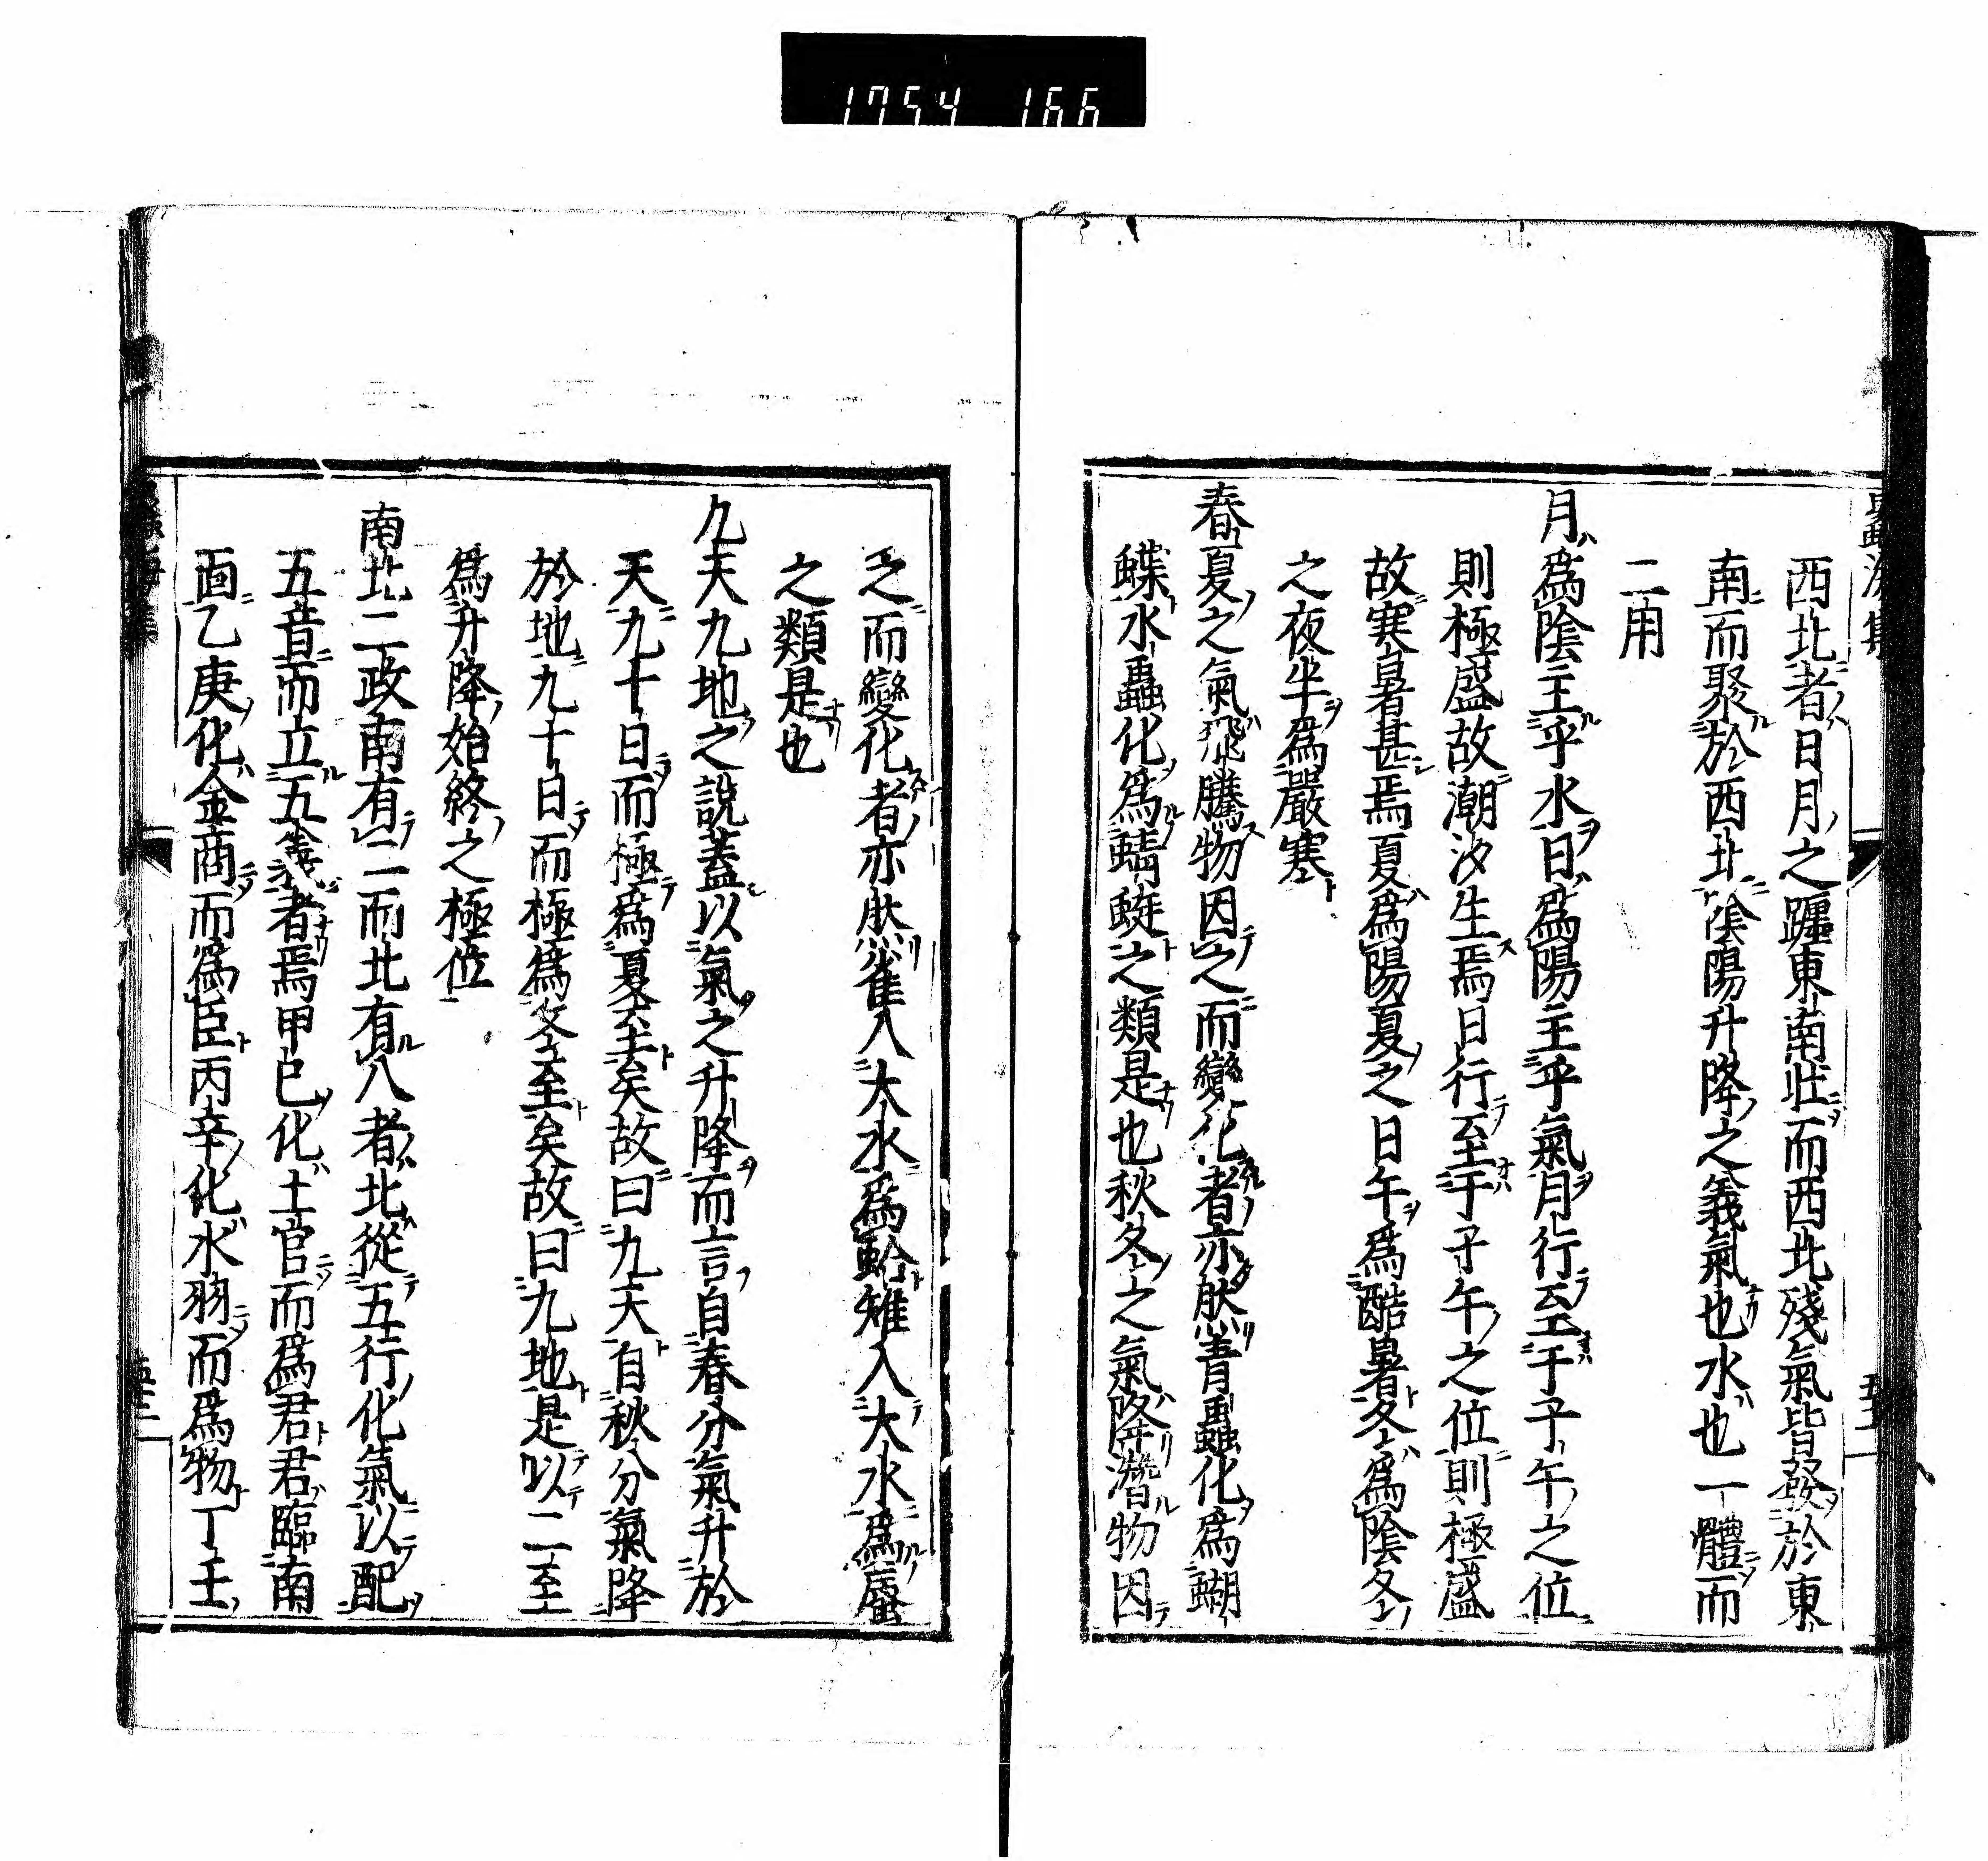 1754 166
西北者日月之躔東南壯而西北殘氣皆發於東
南而聚於西北陰陽升降之義氣也水也一體而
二用
月爲陰主乎水日爲陽主乎氣月行至于子午之位
則極盛故潮汐生焉日行至于子午之位則極盛
故寒暑甚焉夏爲陽夏之日午爲酷暑冬爲陰冬
之夜半爲嚴寒
春夏之氣飛騰物因之而變化者亦然青蟲化爲蝴
蝶水蟲化爲蜻蜓之類是也秋冬之氣降潛物因
之而變化者亦然雀入大水爲蛤雉入大水爲蜃
之類是也
九天九地之說蓋以氣之升降而言自春分氣升於
天九十日而極爲夏至矣故曰九天自秋分氣降
於地九十日而極爲冬至矣故曰九地是以二至
爲升降始終之極位
南北二政南有二而北有八者北從五行化氣以配
五音而立五義者焉甲巳化土宮而爲君君臨南
面乙庚化金商而爲臣丙辛化水羽而爲物丁壬